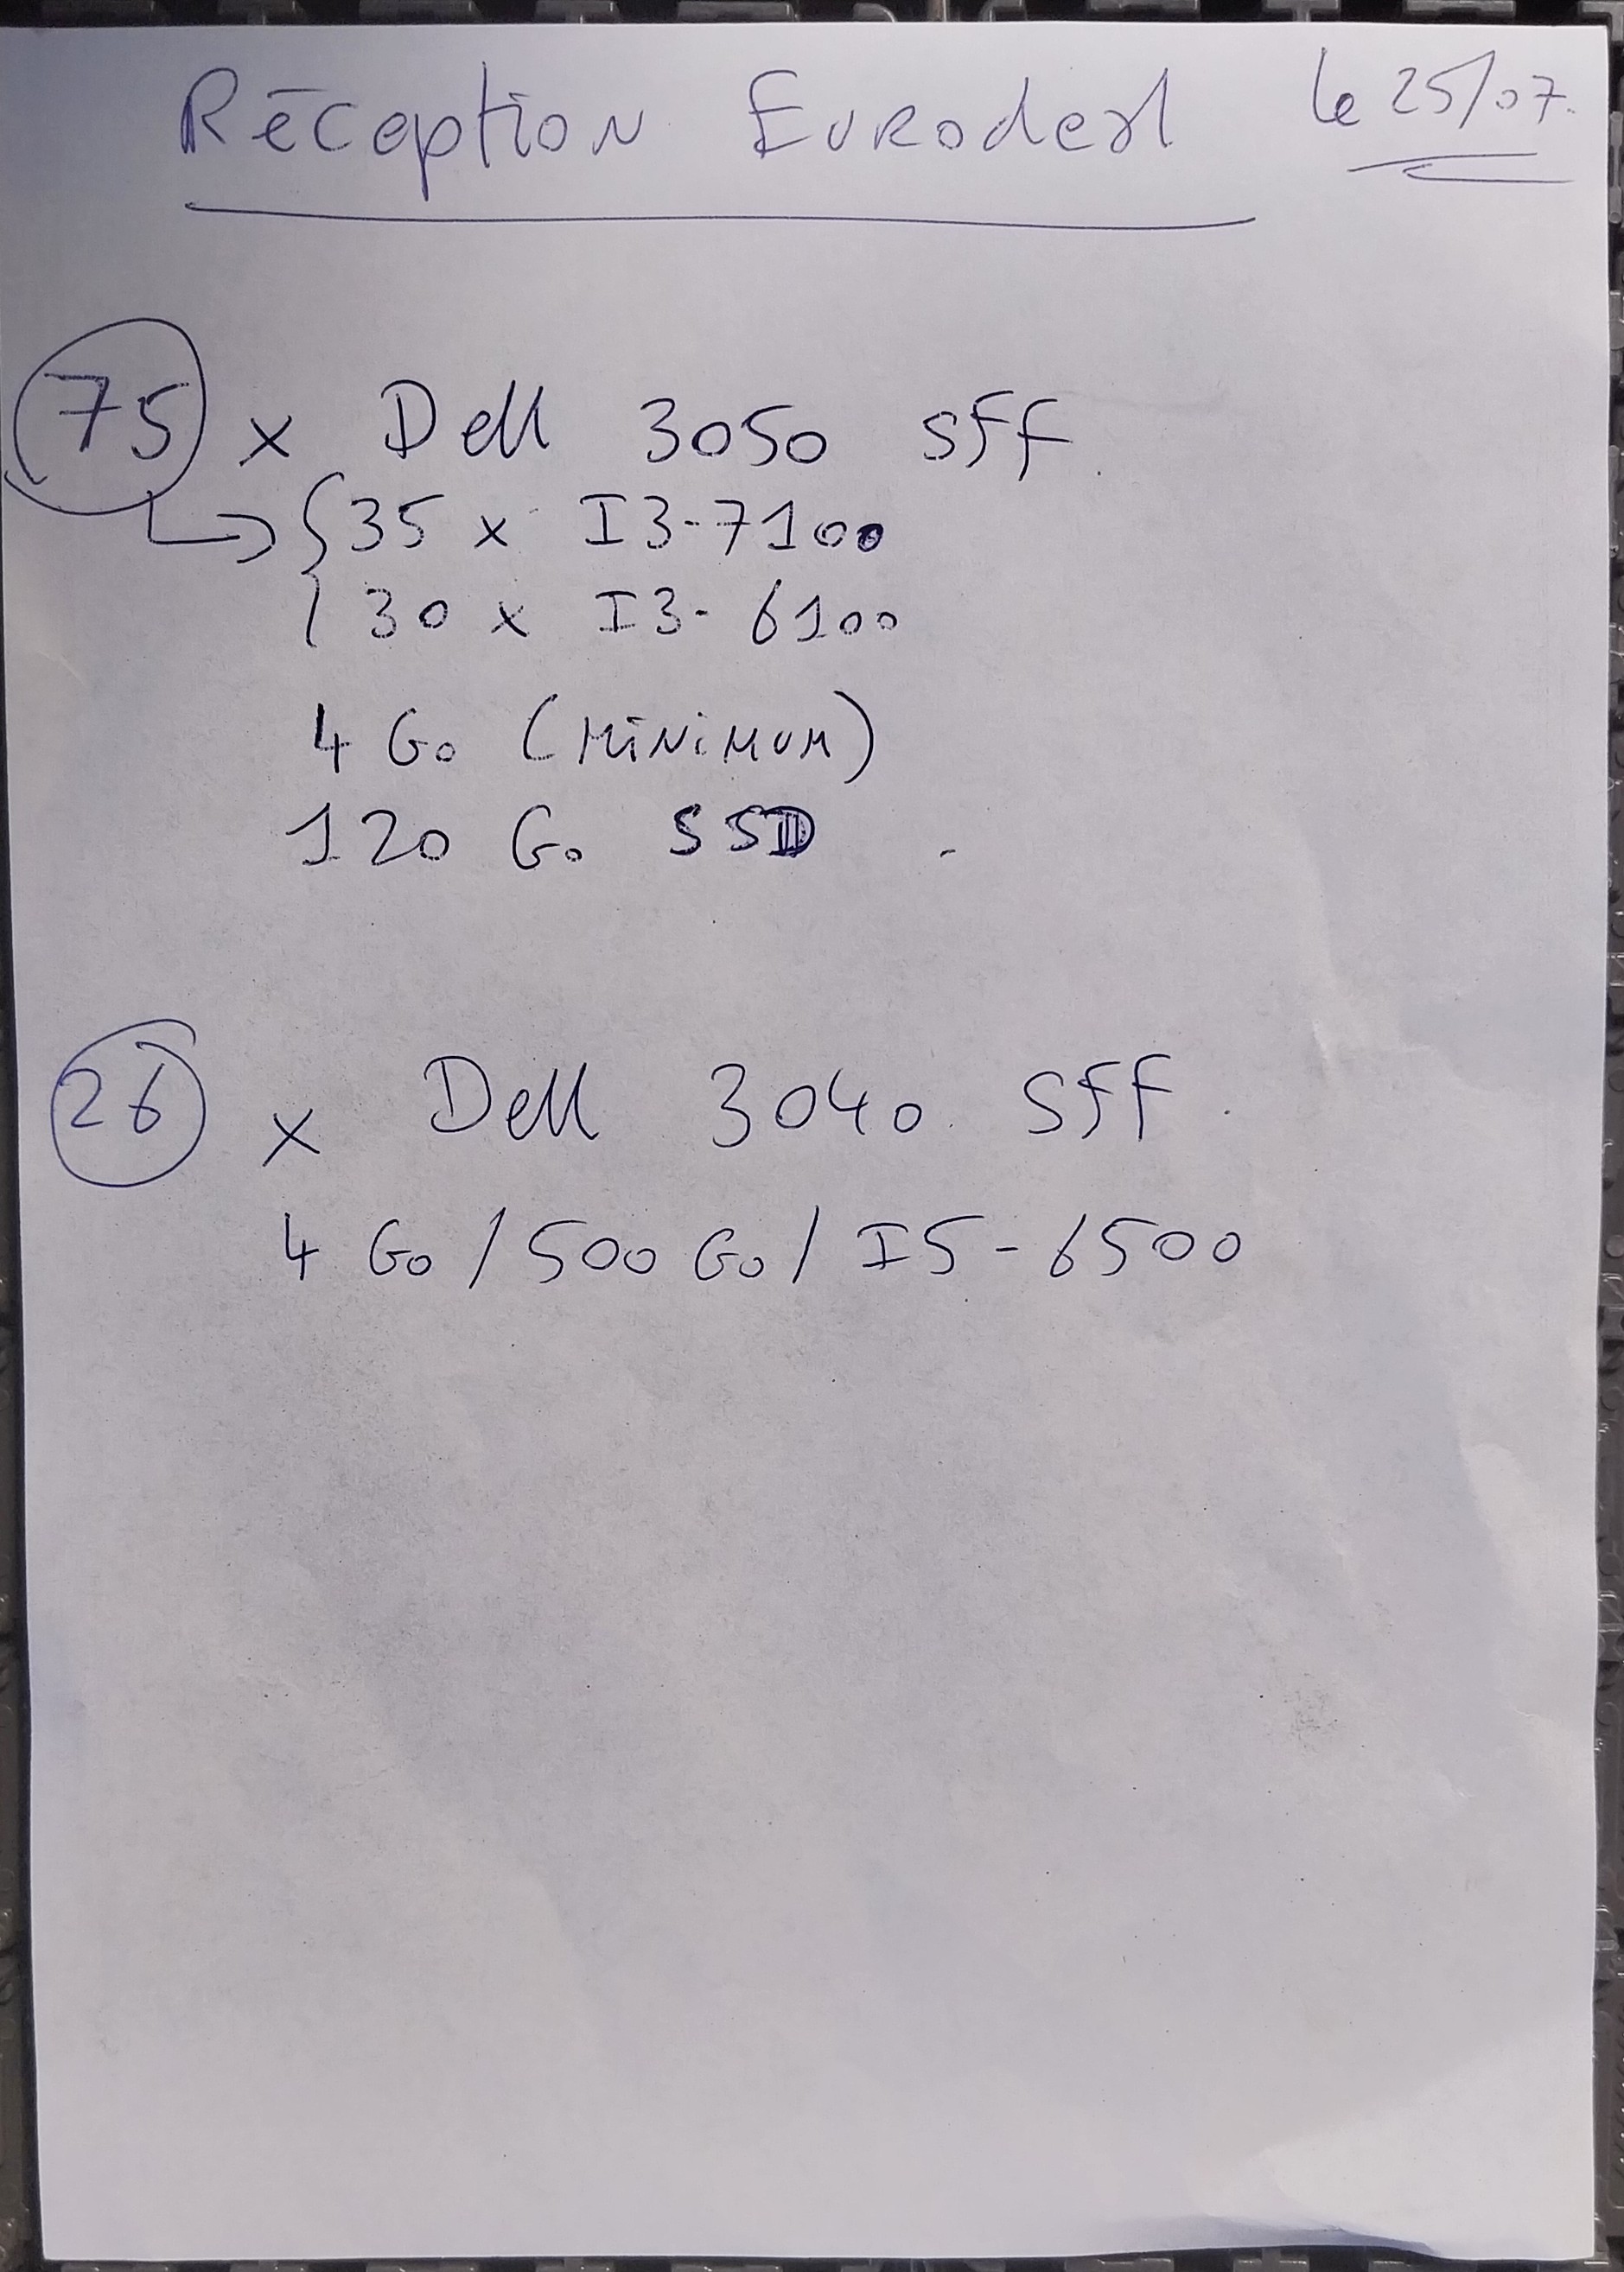 Réception Eurodesk le 25/07.
75 x Dell 3050 Sff.
35 x I3-7100
30 x I3-6100
4 Go (MiNiMUM)
120 Go SSD
26 x Dell 3040 Sff.
4 Go / 500 Go / I5-6500